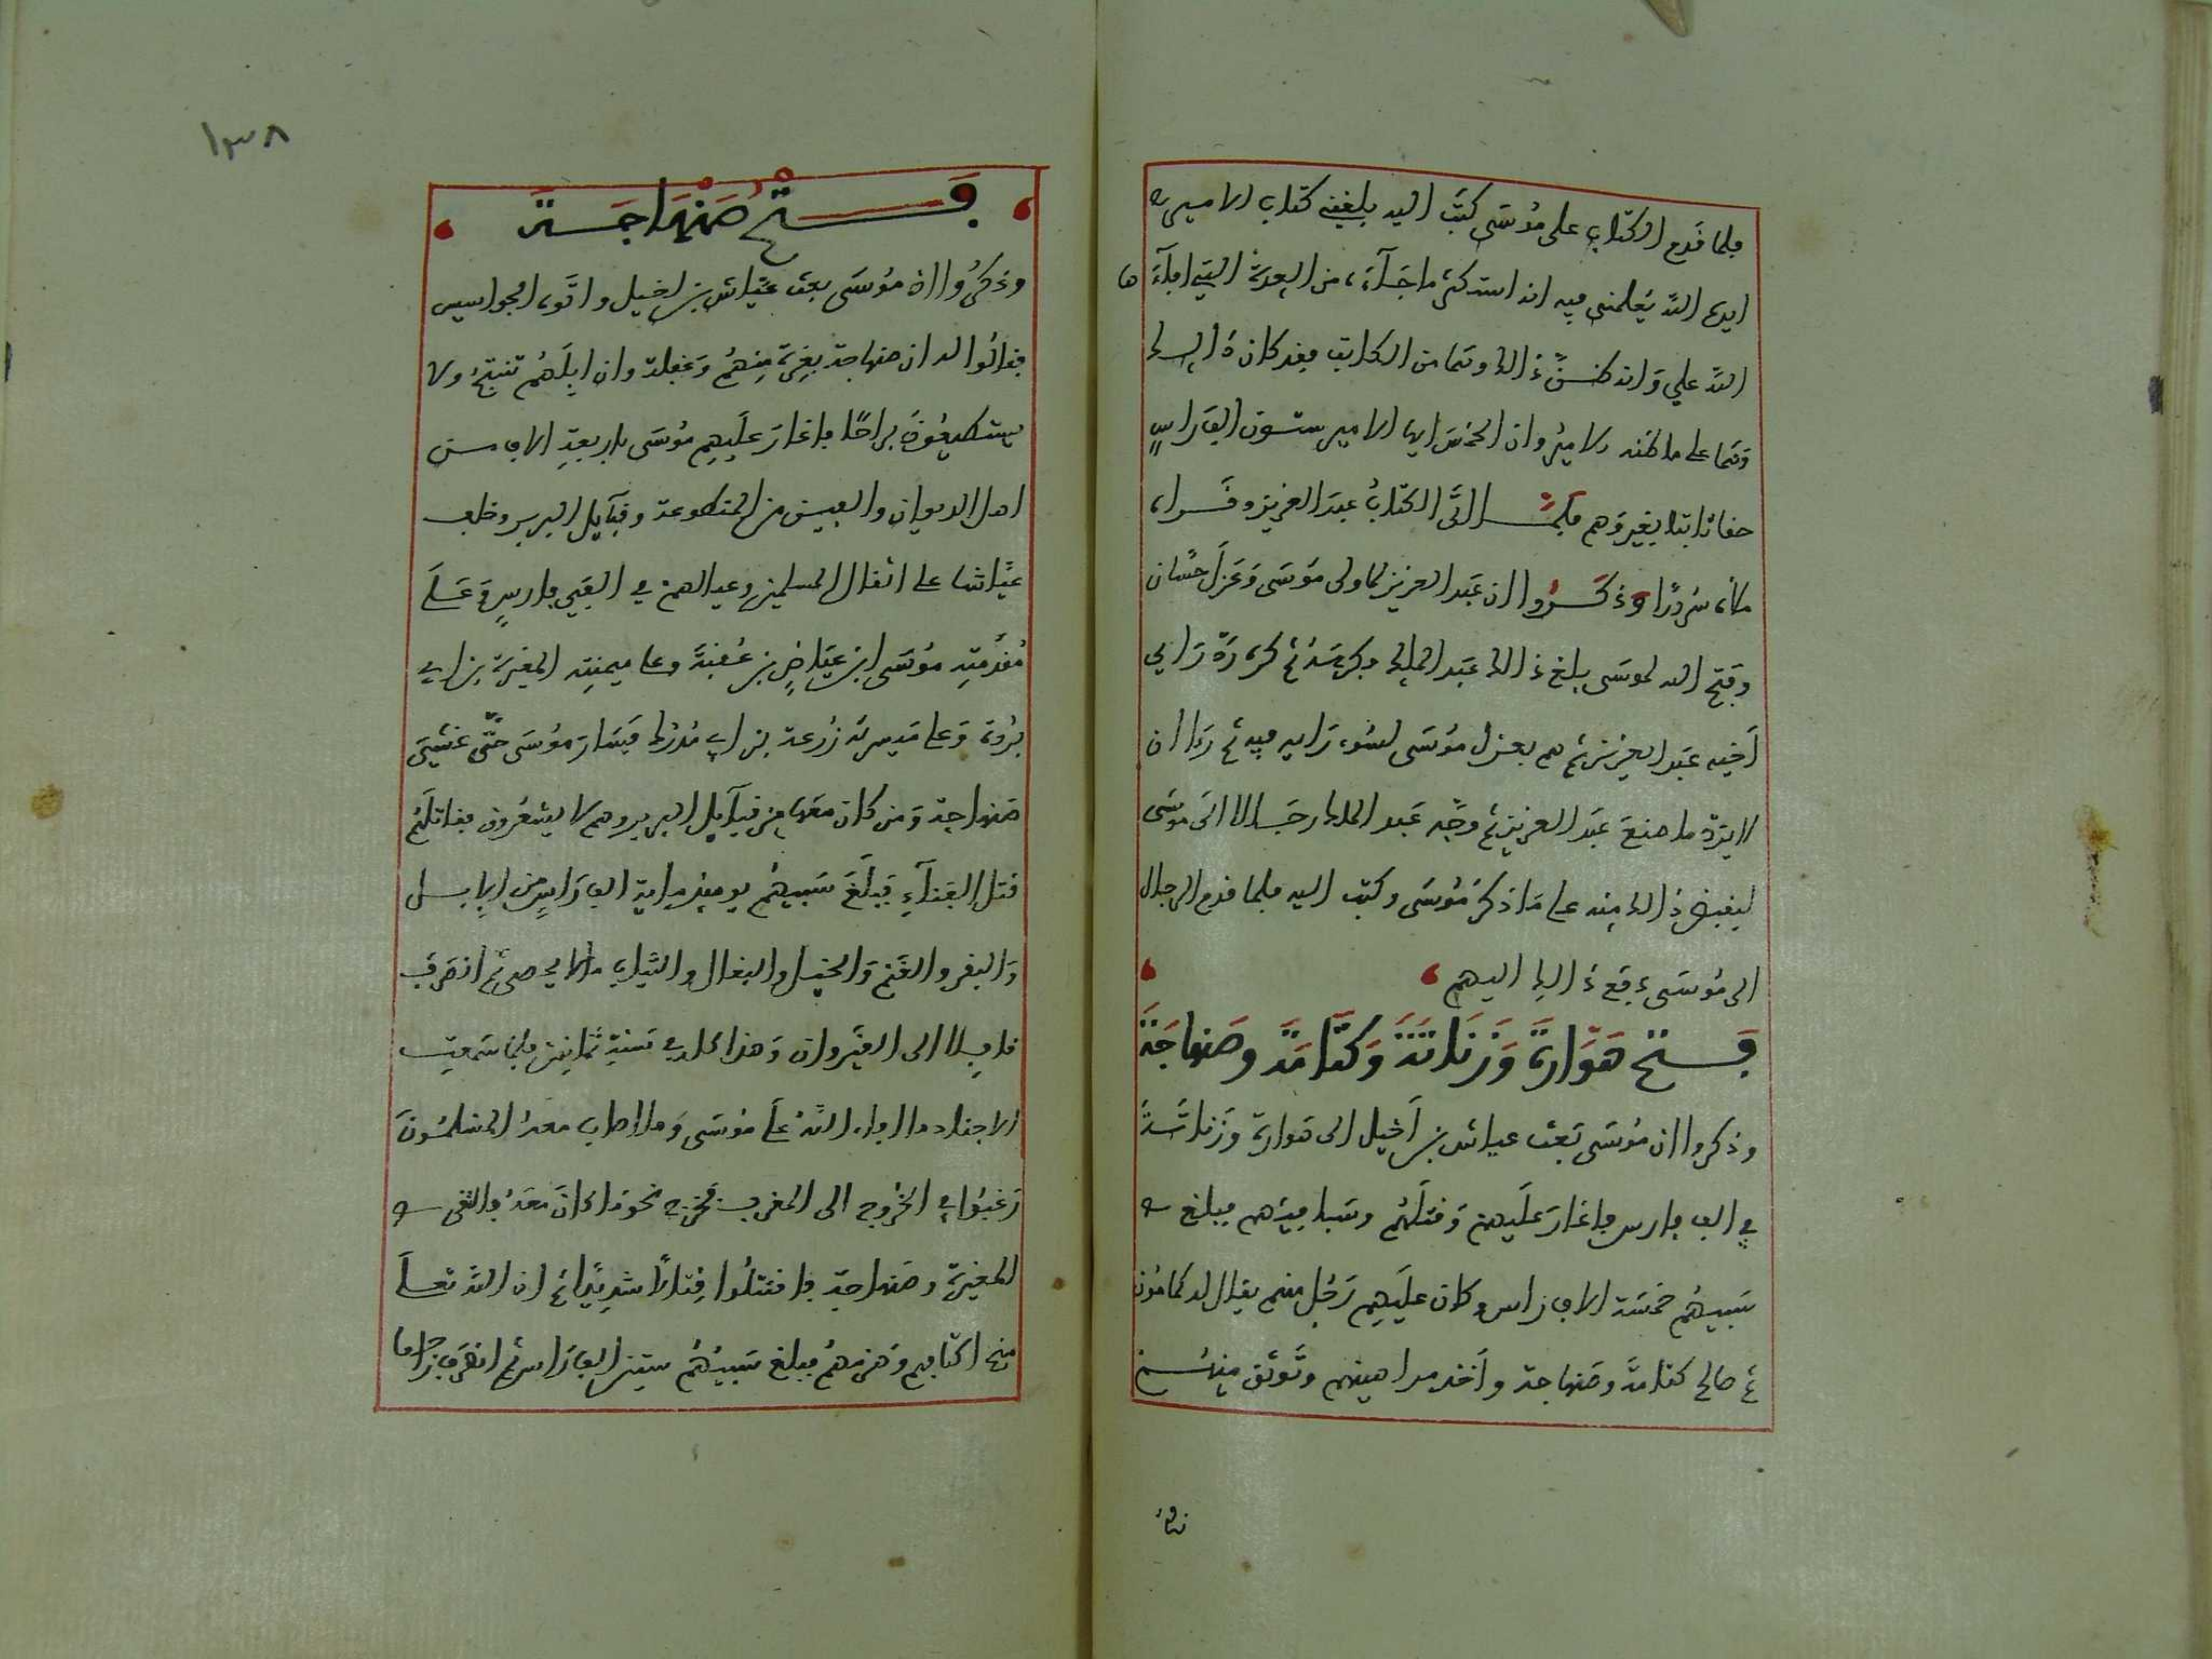 فلما قدم الكتاب على موسى كتب اليه بلغني كتاب الامير
ايده الله يعلمني فيه انه استكثر ما جاءه من العدة التي افاءها
الله علي وانه ظن ذالك وهما من الكاتب فقد كان ذالك
وهما على ما ظنه الامير وان الخمس ايها الامير ستون الف راس
حقا ثابتا بغير وهم فلما اتى الكتاب عبد العزيز وقراه
ملأه سرورا وذكروا ان عبد العزيز لما ولى موسى وعزل حسان
وفتح الله لموسى بلغ ذالك عبد الملك فكره ثم كره رد راي
أخيه عبد العزيز ثم هم بعزل موسى لسوء رايه فيه ثم رءا ان
لا يرد ما صنع عبد العزيز ثم وجه عبد الملك رجالا الى موسى
ليقبض ذالك منه على ما ذكر موسى وكتب اليه فلما قدم الرجال
الى موسى دفع ذالك اليهم
فتح هوارة وزناتة وكتامة وصنهاجة
وذكروا ان موسى بعث عياش بن أخيل الى هوارة وزناتة
في الف فارس فاغار عليهم وقتلهم وسباهم فبلغ
سبيهم خمسة الاف راس وكان عليهم رجل منهم يقال له كمامون
ثم صالح كتامة وصنهاجة وأخذ مراهينهم وتوثق منهم
١٣٨
فتح صنهاجة
وذكروا ان موسى بعث عياش بن اخيل واتوه الجواسيس
فقالوا له ان صنهاجة بغرة منهم وغفلة وان ابلهم تنتج ولا
يستطيعون براحا فاغار عليهم موسى باربعة الاف من
اهل الديوان والفين من المتطوعة وقبايل البربر وخلف
عياشا على اثقال المسلمين وعيالهم في الفي فارس وعلى
مقدمته موسى ابن عياض بن عقبة وعلى ميمنته المغيرة بن ابي
بردة وعلى ميسرته زرعة بن ابي مدرك فسار موسى حتى غشي
صنهاجة ومن كان معها من قبايل البربر وهم لا يشعرون فقاتلهم
قتل الفناء فبلغ سبيهم يوميذ ماية الف راس من الابل
والبقر والغنم والخيل والبغال والثياب ما لا يحصى ثم انصرف
قافلا الى القيروان وهذا كله في سنة ثمانين فلما سمعت
الاجناد ما افاء الله على موسى وما اصاب معه المسلمون
رغبوا في الخروج الى المغرب فخرج نحو ما كان معه والتقى
المغيرة وصنهاجة فاقتتلوا قتالا شديدا ثم ان الله تعلى
منح اكتافهم وهزمهم فبلغ سبيهم ستين الف راس ثم انصرف راجعا